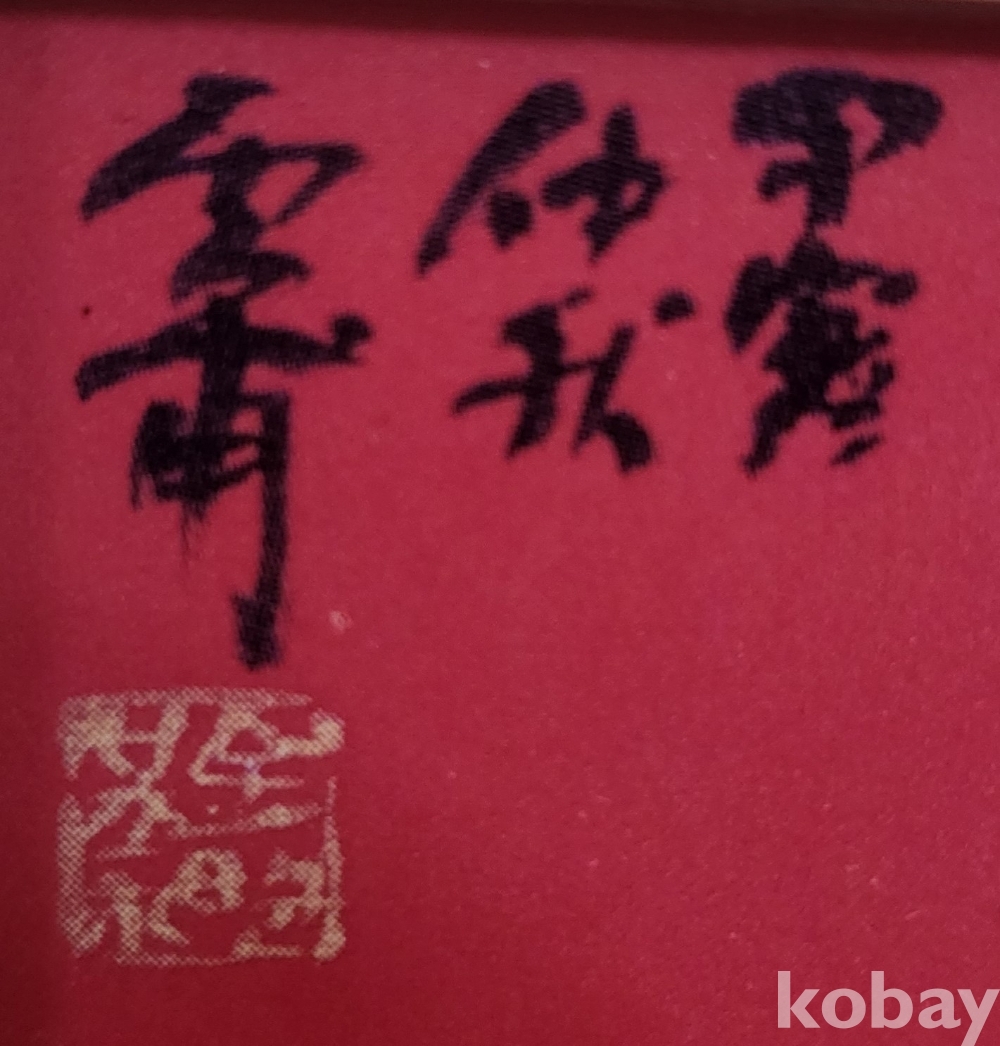 甲寅
仲秋
雲甫
kobay